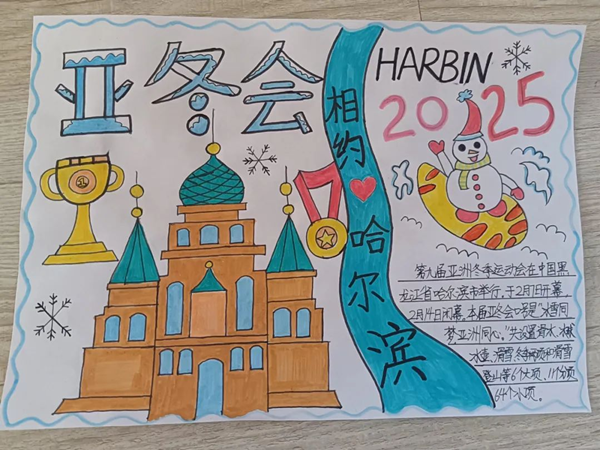 亚冬会
相约哈尔滨
HARBIN
2025
第九届亚洲冬季运动会在中国黑
龙江省哈尔滨市举行,于2月7日开幕,
2月14日闭幕。本届亚冬会口号是"冰雪同
梦,亚洲同心"。共设置滑冰、冰球
冰壶、滑雪、冬季两项和滑雪
登山等6个大项、11个分项
64个小项。